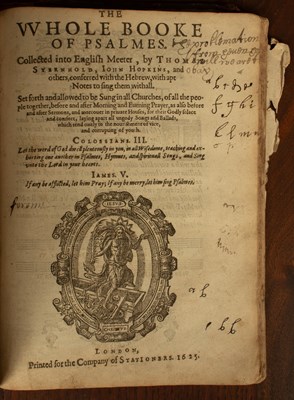 THE
VVHOLE BOOKE
OF PSALMES.
Collected into English Meeter, by THOMAS
STERNHOLD, IOHN HOPKINS, and
others, conferred with the Hebrew, with apt
Notes to sing them withall.
Set forth and allowed to be Sung in all Churches, of all the peo-
ple together, before and after Morning and Evening Prayer, as also before
and after Sermons, and moreover in private Houses, for their Godly solace
and comfort, laying apart all ungodly Songs and Ballads,
which tend onely to the nourishment of vice,
and corrupting of youth.
COLOSSIANS. III.
Let the word of God dwell plenteously in you, in all Wisedome, teaching and ex-
horting one another in Psalmes, Hymnes, and spirituall Songs, and sing
unto the Lord in your hearts.
IAMES. V.
If any be afflicted, let him Pray; if any be merry, let him sing Psalmes.
LONDON,
Printed for the Company of STATIONERS. 1625.